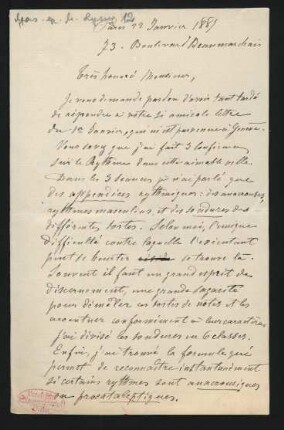 Paris 22 Janvier 1889
73. Boulevard Beaumarchais
Très honoré Monsieur,
Je vous demande pardon d'avoir tant tardé
de répondre à votre si amicale lettre
du 1er Janvier, qui m'est parvenue à
Vous savez que j'ai fait 3 conférences
sur le Rythme dans cette aimable ville.
Dans les 3 séances j'ai parlé que
des rythmiques: des anacrouses,
rythmes masculins et des soudures des
différentes sortes. Selon moi, l'unique
difficulté contre laquelle l'exécutant
peut se heurter se trouve là.
Souvent il faut un grand esprit de
discernement, une grande sagacité
pour démêler ces sortes de notes et les
accentuer conformément à leur caractère.
J'ai divisé les soudures en 6 classes.
Enfin, j'ai trouvé la formule qui
permet de reconnaître instantanément
si certains rythmes sont anacrousiques
ou proscataleptiques.